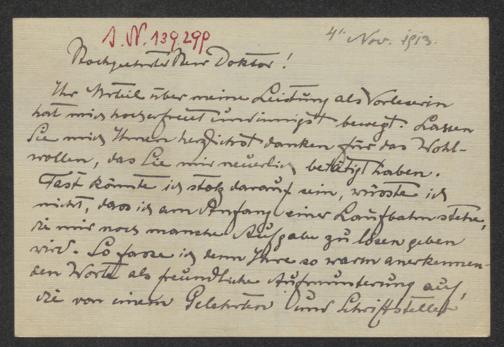 I. N. 139.299
4. Nov. 1913.
Hochgeehrter Herr Doktor!
Ihr Urteil über meine Leistung als Vorleserin
hat mich hocherfreut und innigst bewegt. Lassen
Sie mich Ihnen herzlichst danken für das Wohl-
wollen, das Sie mir neuerlich betätigt haben.
Fast könnte ich stolz darauf sein, wüsste ich
nicht, dass ich am Anfang einer Laufbahn stehe,
die mir noch manche Aufgabe zu lösen geben
wird. So fasse ich denn Ihre so warm anerkennen-
den Worte als freundliche Aufmunterung auf,
die von einem Gelehrten und Schriftsteller